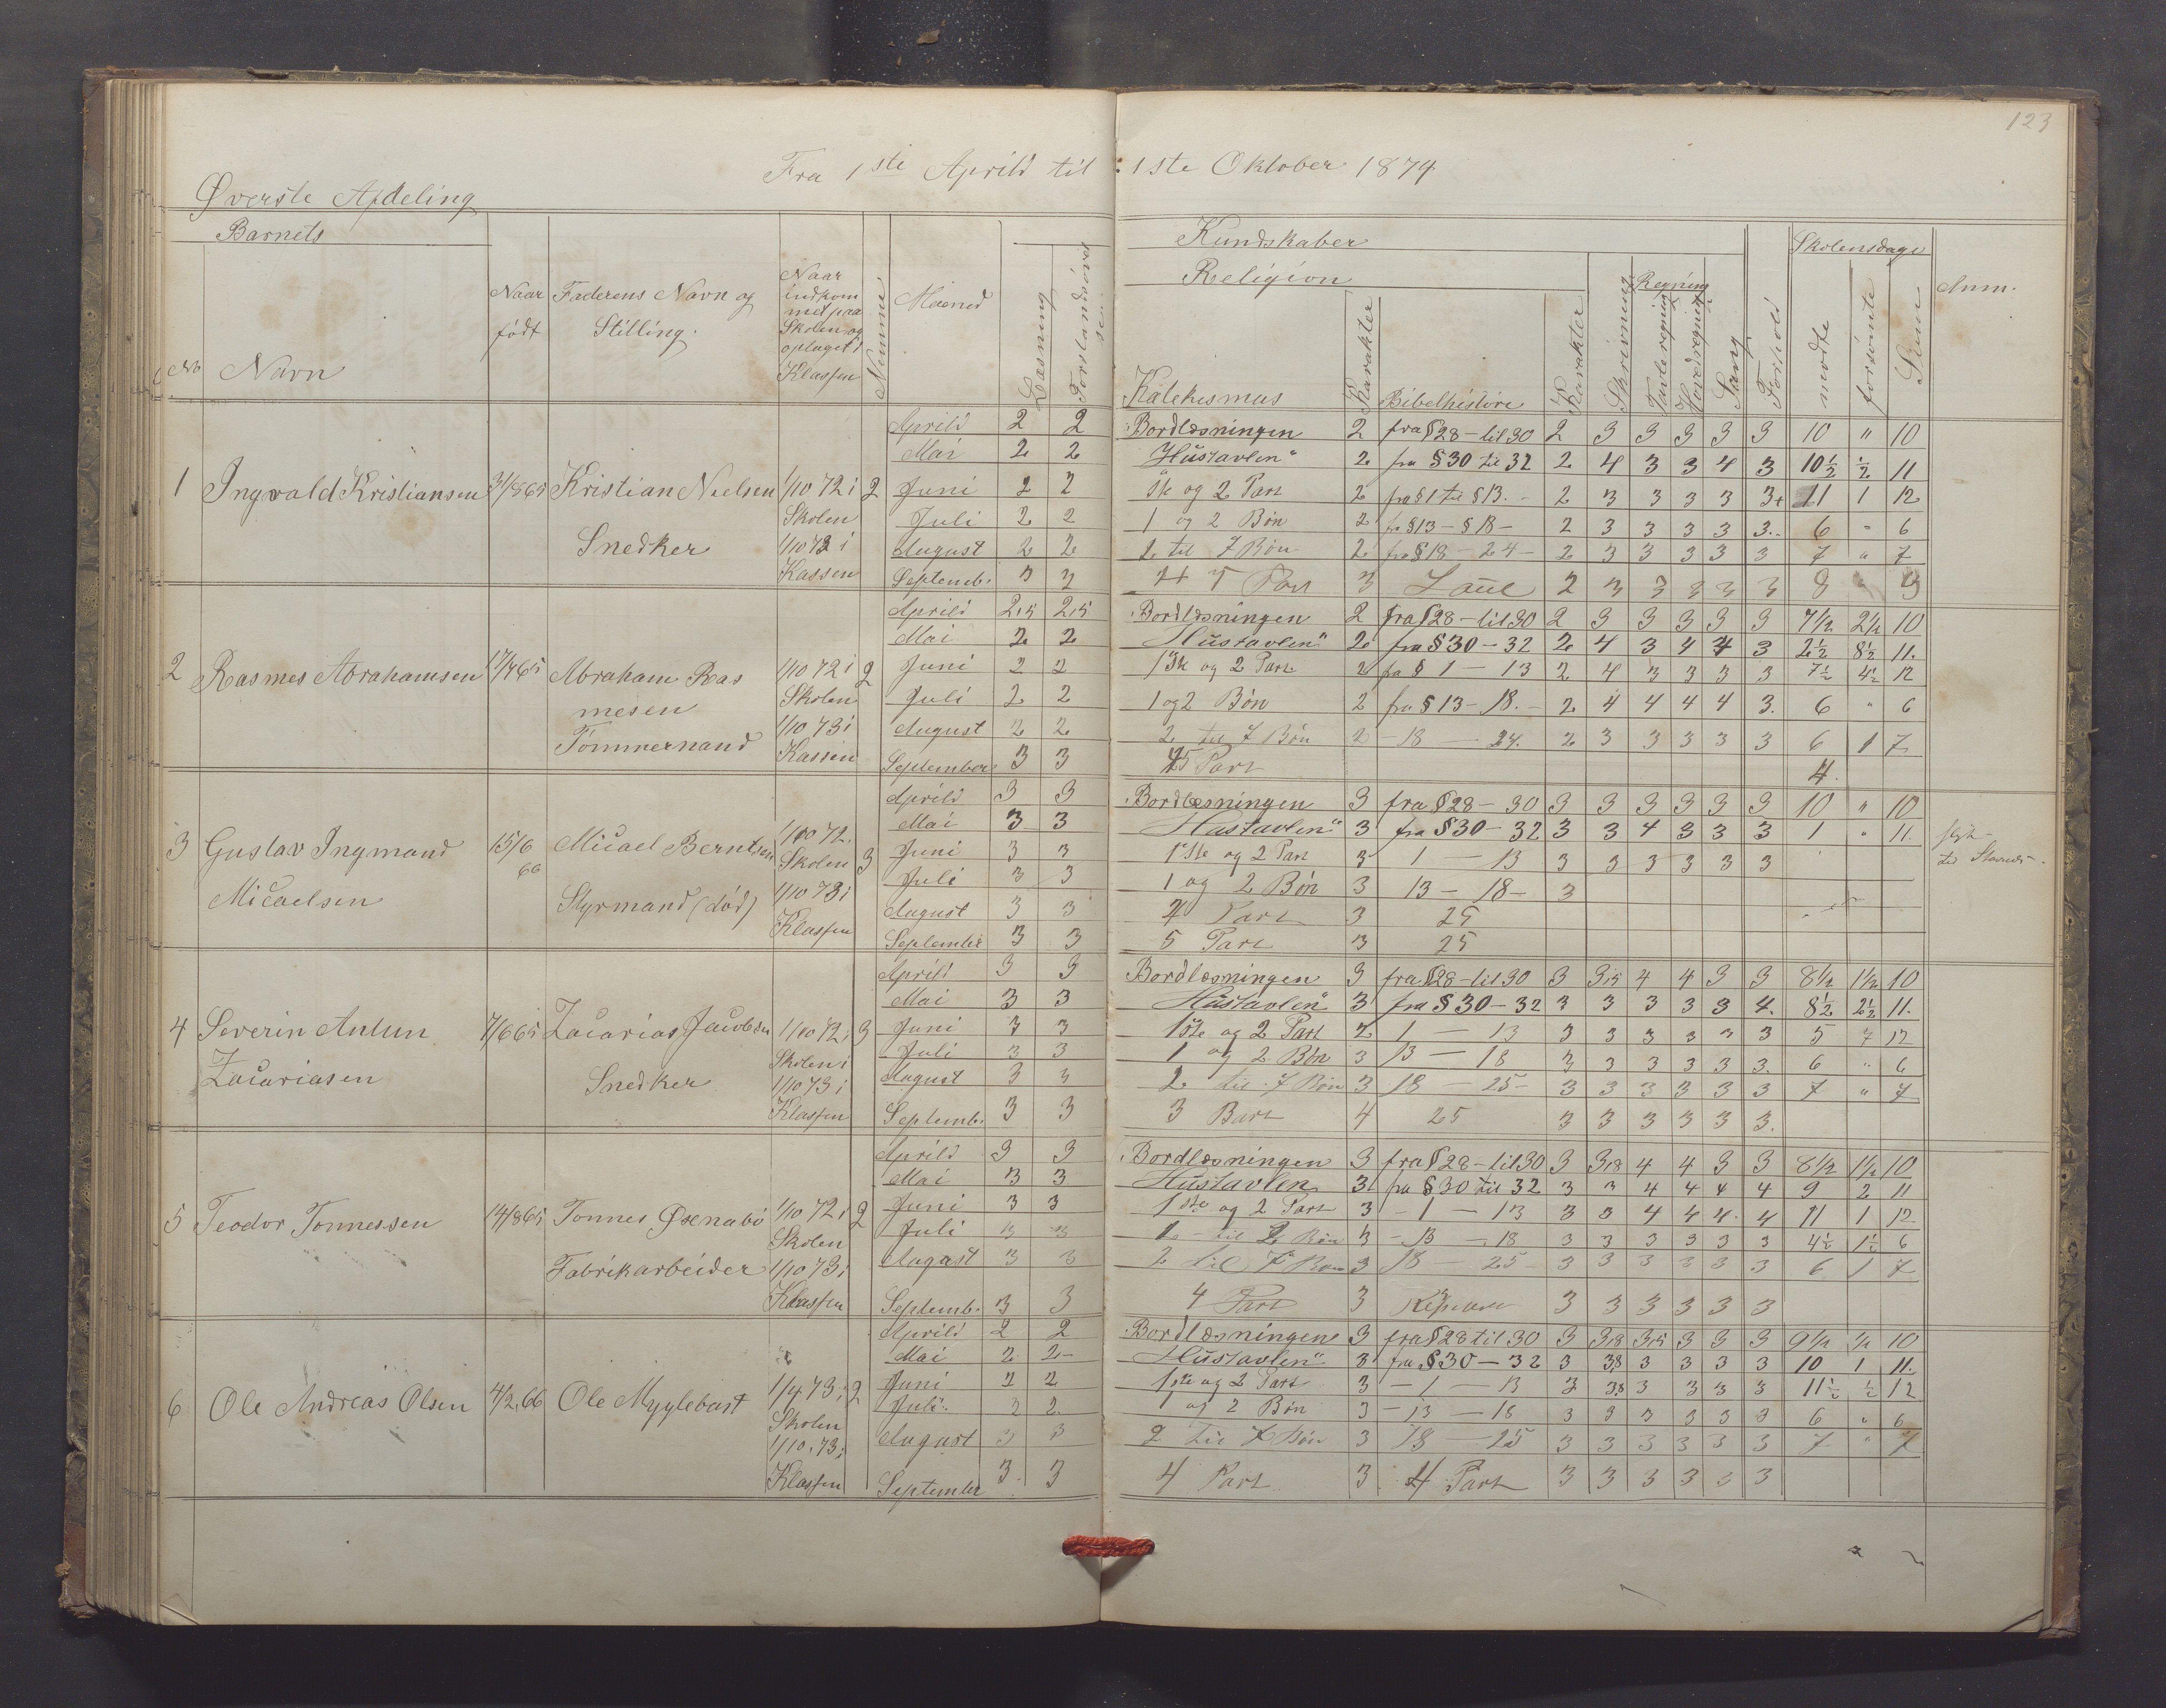 123
Fra 1ste Aprild til 1ste Oktober 1874
Øverste Afdeling
Barnets
No Navn
Naar født
Faderens Navn og Stilling.
Naar indkommet paa Skolen og optaget i Klassen
Nemme
Maaned
Læsning
Kundskaber
Religion
Katekismus
Karakter
Bibelhistorie
Karakter
Skrivning
Regning
Tavleregning
Hovedregning
Sang
Forhold
Skolensdage
mødte
forsømte
Sum
Anm.
1 Ingvald Kristiansen Kristian Nielsen Snedker 1/10 72 i Skolen 1/10 73 i Kassen 2
Aprild 2 2 Bordlæsningen 2 fra § 28 - til 30 2 3 3 3 3 3 10 " 10
Mai 2 2 Hustavlen" 2 fra § 30 til 32 2 4 3 3 4 3 10½ ½ 11
Juni 2 2 1ste og 2 Part 2 fra § 1 til § 13. - 2 3 3 3 3 3+ 11 1 12
Juli 2 2 1 og 2 Bøn 2 fra § 13 - § 18 - 2 3 3 3 3 3. 6 " 6
August 2 2 2 til 7 Bøn 2 fra § 18 - 24 - 2 3 3 3 3 3 7 " 7
Septemb. 3 3 Part 3 2 3 3 3 3 3 8
2 Rasmes Abrahamsen Abraham Rasmesen Tømmermand 1/10 72 i Skolen 1/10 73 i Kassen 2
Aprild 2,5 2,5 Bordlæsningen 2 fra § 28 - til 30 2 3 3 3 3 3 7½ 2½ 10
Mai 2 2 Hustavlen" 2 fra § 30 - 32 2 4 3 4 4 3 2½ 8½ 11.
Juni 2 2 1ste og 2 Part 2 fra § 1 - 13 2 4 3 3 3 3 7½ 4½ 12
Juli 2 2 1 og 2 Bøn 2 fra § 13 - 18. - 2 4 4 4 4 3. 6 " 6
August 2 2 2 til 7 Bøn 2 - 18 - 24. 2 3 3 3 3 3 6 1 7
September 3 3 Part 4.
3 Gustav Ingmand Micaelsen 15/6 66 Micael Berntsen Styrmand (død) 1/10 72. Skolen 1/10 73 i Klassen 3
Aprild 3 3 Bordlæsningen 3 fra § 28 - 30 3 3 3 3 3 3 10 " 10
Mai 3 3 Hustavlen" 3 fra § 30 - 32 3 3 4 3 3 3 1 " 11.
Juni 3 3 1ste og 2 Part 3 1 - 13 3 3 3 3 3 3
Juli 3 3 1 og 2 Bøn 3 13 - 18 - 3
August 3 3 4 Part 3 25
September 3 3 5 Part 3 25
4 Severin Antun Zacariasen 7/6 65 Zacarias Jacobsen Snedker 1/10 72 i Skolen i 1/10 73 i Klassen 3
Aprild 3 3 Bordlæsningen 3 fra § 28 - til 30 3 3,5 4 4 3 3 8½ 1½ 10
Mai 3 3 Hustavlen" 3 fra § 30 - 32 3 3 3 3 3 4. 8½ 2½ 11.
Juni 3 3 1ste og 2 Part 2 1 - 13 3 3 3 3 3 3 5 7 12
Juli 3 3 1 og 2 Bøn 3 13 - 18 3 3 3 3 3 3. 6 " 6
August 3 3 2 til 7 Bøn 3 18 - 25 - 3 3 3 3 3 3 7 " 7
Septemb. 3 3 3 Part 4 25 3 3 3 3 3 3.
5 Teodor Tonnessen 14/8 65 Tonnes Øxnabø Fabrikarbeider 1/10 72 i Skolen 1/10 73 i Klassen 2
Aprild 3 3 Bordlæsningen 3 fra § 28 - til 30 3 3,8 4 4 3 3 8½ 1½ 10
Mai 3 3 Hustavlen 3. fra § 30 til 32 3 3 4 4 4 4 9 2 11
Juni 3 3 1ste og 2 Part 3 - 1 - 13 3 3 4 4 4. 4 11 1 12
Juli 3 3 1 - til 2 Bøn 3 - 13 - 18 3 3 3 3 3 3 4½ 1½ 6
August 3 3 2 til 7 Bøn 3 18 - 25 - 3 3 3 3 3 3 6 1 7
Septemb. 3 3 4 Part 3 3 3 3 3 3 3
6 Ole Andreas Olsen 4/2 66 Ole Myglebust 1/4 73 i Skolen 1/10. 73 i Klassen 2
Aprild 2 2 Bordlæsningen 3 fra § 28 til 30 3 3,8 3,5 3 3 3 9½ ½ 10
Mai 2 2 - Hustavlen" 3 fra § 30 - 32 3 3,8 3 3 3 3 10 1 11.
Juni 2 2 1ste og 2 Part 3 - 1 - 13 3 3,8 3 3 3 3 11½ ½ 12
Juli 2 2 1 og 2 Bøn 3 - 13 - 18 3 3 3 3 3 3 6 " 6
August 3 3 2 til 7 Bøn 3 18 - 25 3 3 3 3 3 3 7 " 7
September 3. 3 4 Part 3 4 Part 3 3 3 3 3 3